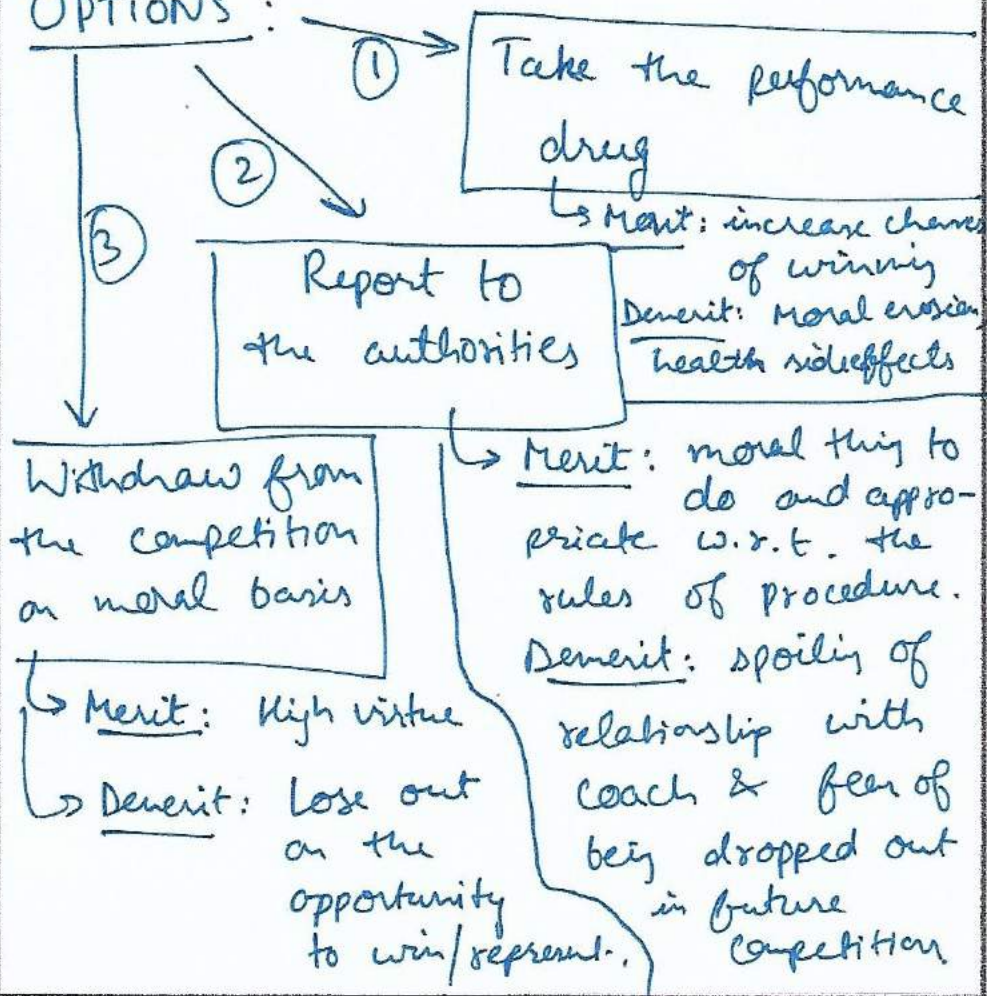 OPTIONS :
①
Take the performance
drug
Merit : increase chances
of winning
Demerit: Moral erosion,
health sideeffects
②
Report to
the authorities
Merit : moral thing to
do and appro-
priate w.r.t. the
rules of procedure.
Demerit: spoiling of
relationship with
coach & fear of
being dropped out
in future
competition.
③
Withdraw from
the competition
on moral basis
Merit : High virtue
Demerit : Lose out
on the
opportunity
to win/represent.